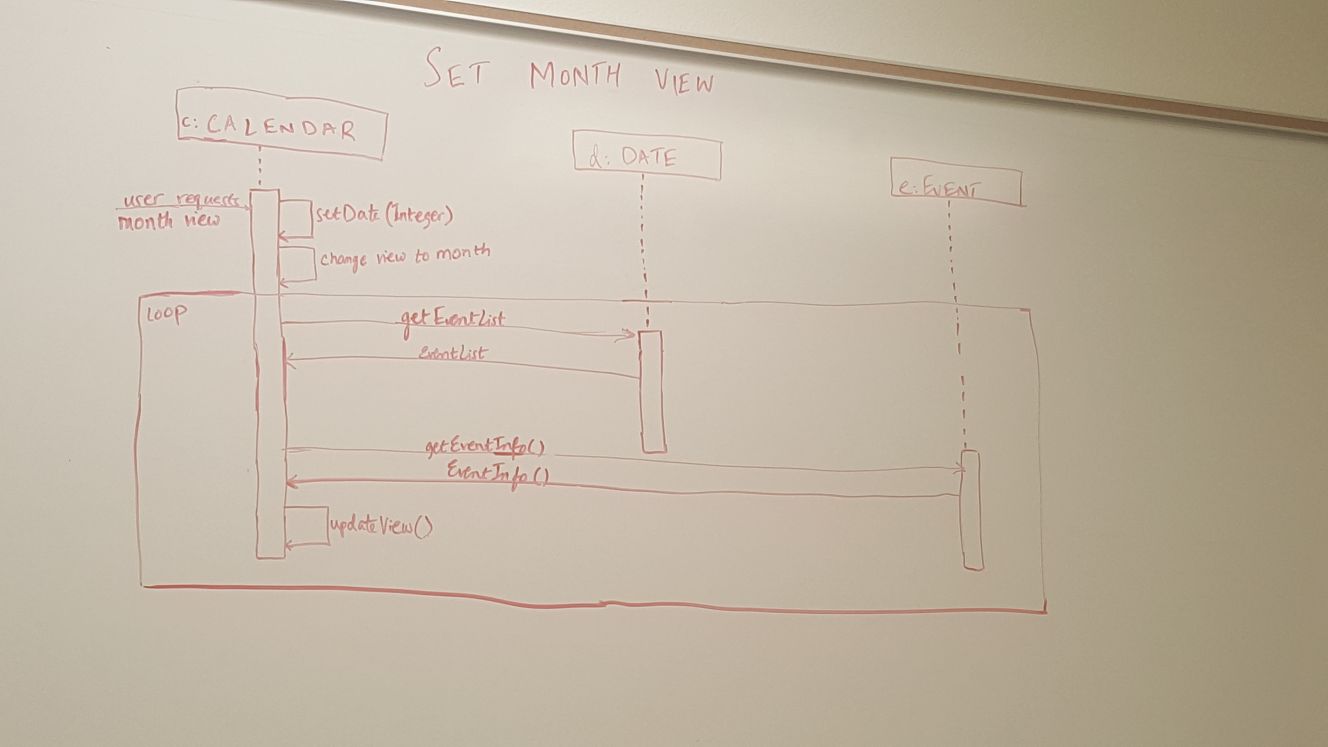 SET MONTH VIEW
c: CALENDAR
d: DATE
e: EVENT
user requests
month view
setDate (Integer)
change view to month
LOOP
getEventList
EventList
getEventInfo()
EventInfo()
updateView()